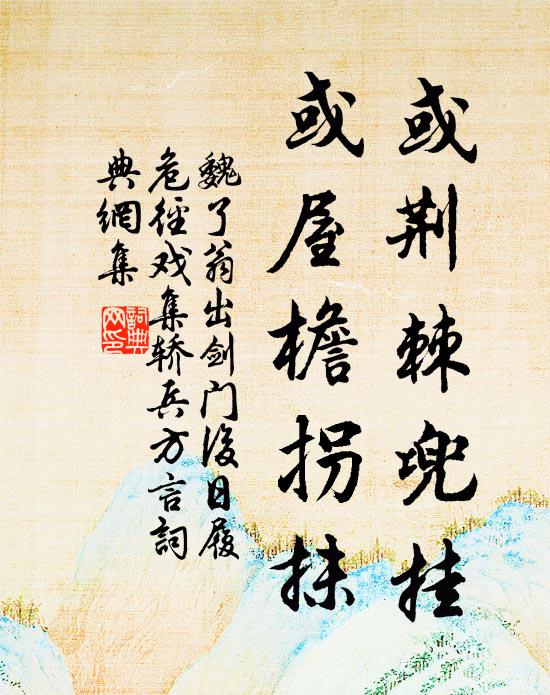 或荆棘兜挂
或屋檐拐抹
魏了翁出剑门后日履
危径戏集轿兵方言词
典網集
詞典
网印